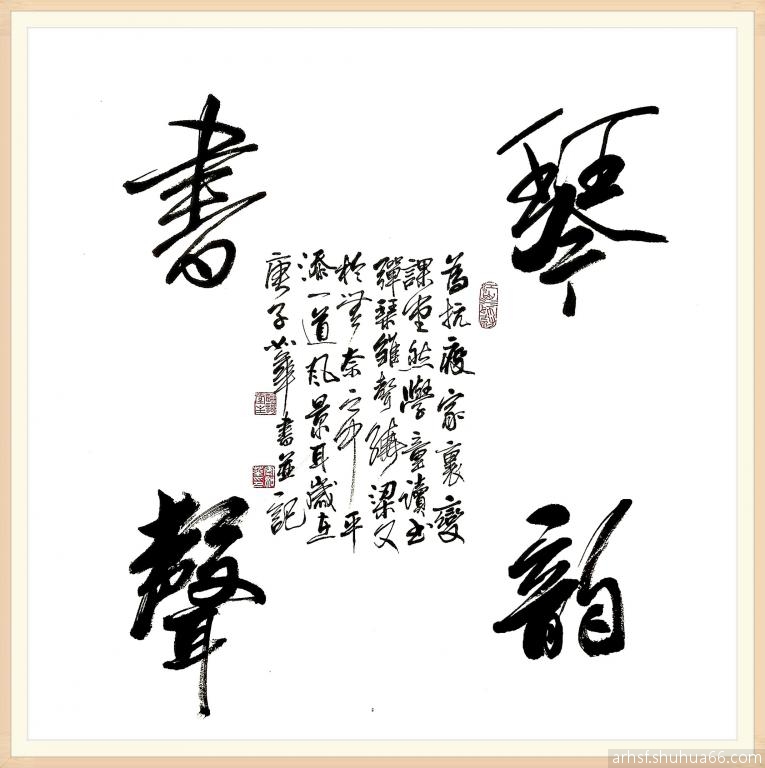 琴韵
書聲
為抗疫家裏變
課堂然學童讀书
彈琴雖聲繞梁又
於無奈之中平
添一道風景耳歲在
庚子華書並記
arhsf.shuhua66.com